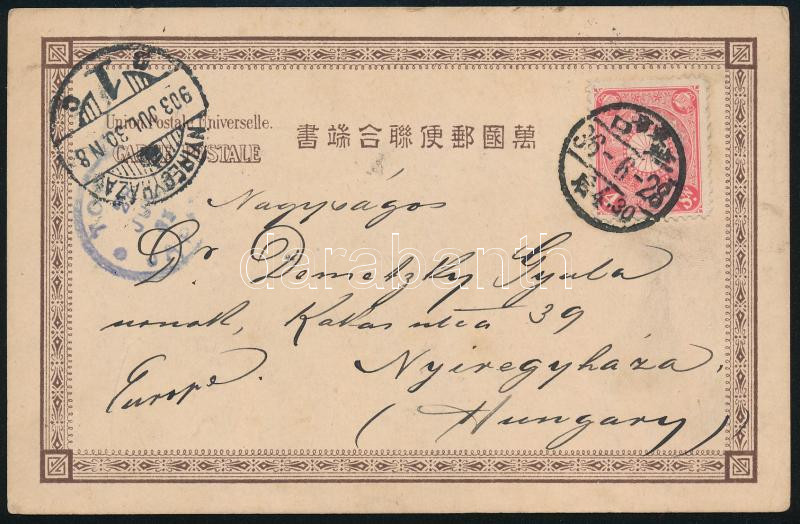 Union Postale Universelle.
CARTE POSTALE
書端合聯便郵國萬
NYIREGYHÁZA
903 JUL 30 N.8
36-6-28
Nagyságos
Dr. Dometzky Gyula
urnak, Kakas utca 39
Nyiregyháza,
Europe.
(Hungary)
darabanth